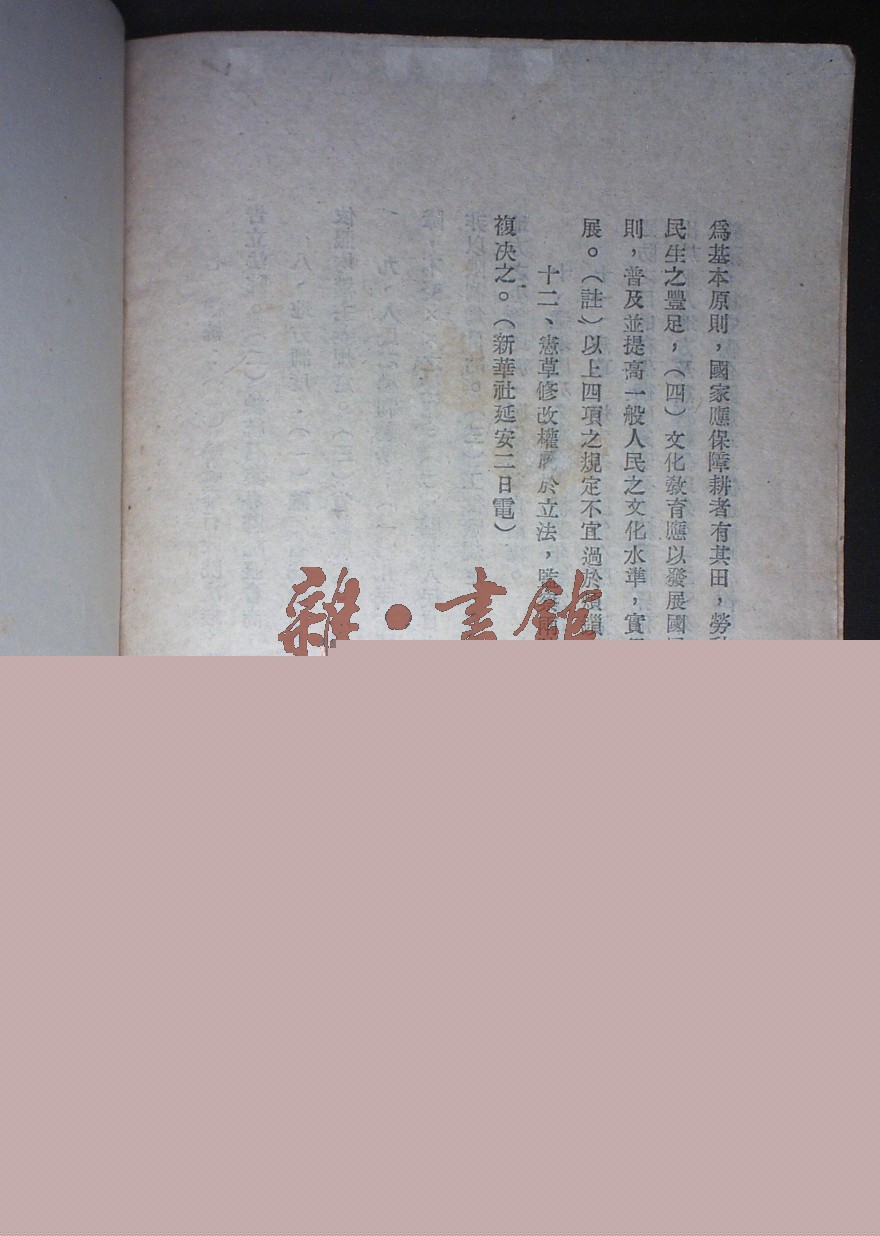 爲基本原則，國家應保障耕者有其田，勞
民生之豐足，（四）文化敎育應以發展國
則，普及並提高一般人民之文化水準，實
展。（註）以上四項之規定不宜過於煩鎖
十二、憲草修改權屬於立法，監察
複决之。（新華社延安二日電）
雜·書館